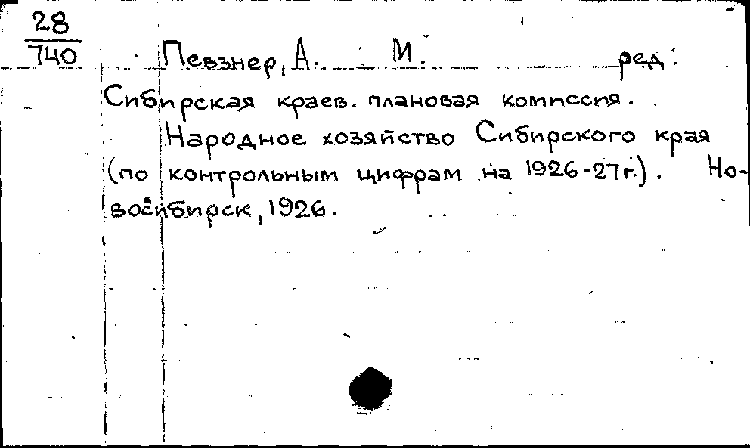 28
740
Певзнер, А. М. ред.
Сибирская краев. плановая комиссия.
Народное хозяйство Сибирского края
(по контрольным цифрам на 1926-27 г.). Но-
восибирск, 1926.